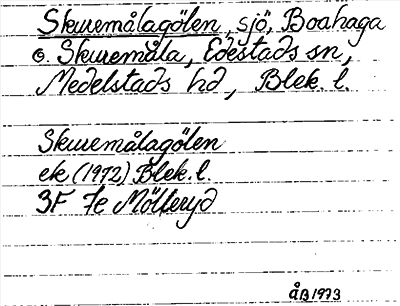 Skuremålagölen, sjö, Boahaga
o. Skuremåla, Edestads sn,
Medelstads hd, Blek. l.
Skuremålagölen
ek (1972) Blek. l.
3F 7e Mölleryd
ÅB 1973